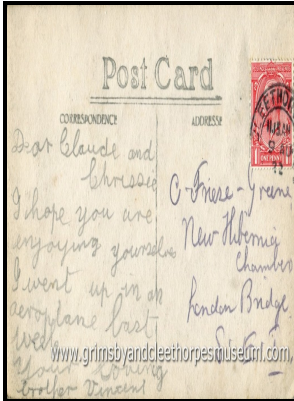 Post Card
CORRESPONDENCE
ADDRESS
Dear Claude and
Chrissie
I hope you are
enjoying yourselves
I went up in an
aeroplane last
week
Your loving
brother Vincent
C-Friese-Greene
New Hibernia
Chambers
London Bridge
S.E.1.
ONE PENNY
www.grimsbyandcleethorpesmuseum.com